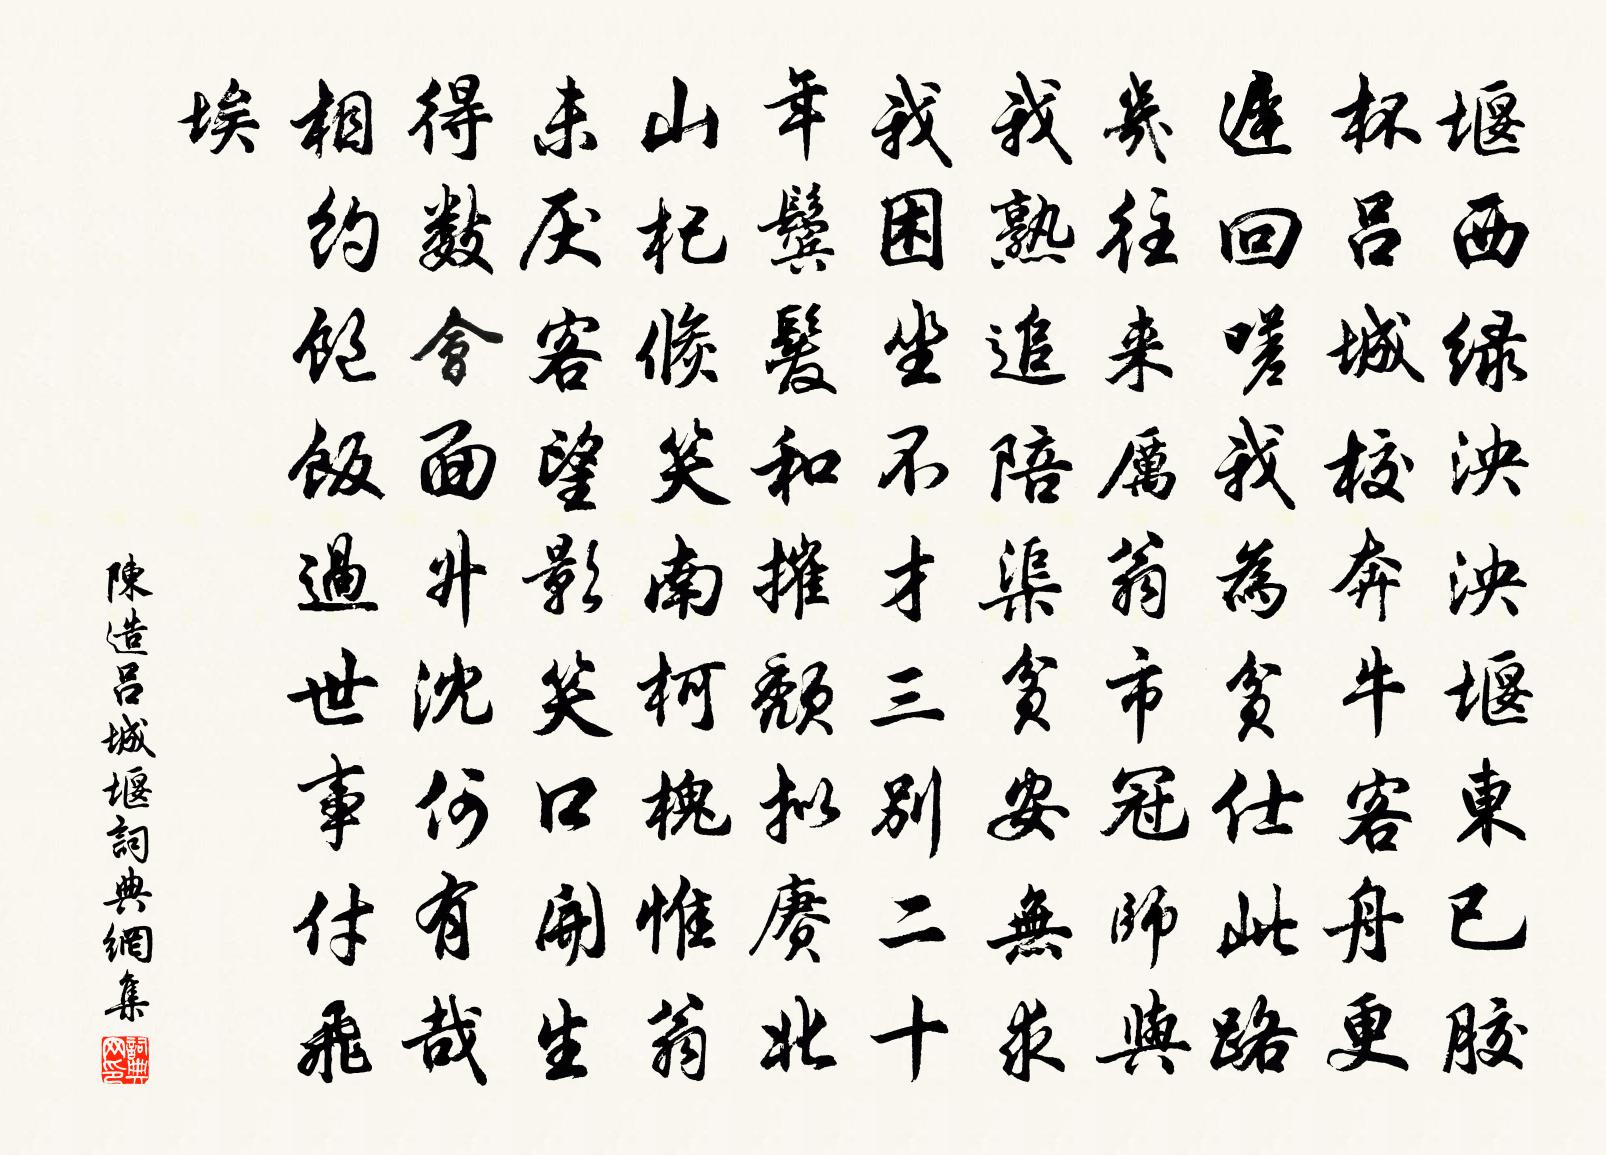 堰西緑泱泱堰東已胶
杯吕城校奔牛客舟更
遲回嗟我為貧仕此路
幾往来厲翁市冠師與
我熟追陪渠貧安無求
我困坐不才三别二十
年鬢髮和摧頹拟赓北
山杞倏笑南柯槐惟翁
未厌客望影笑口開生
得數會面升沈何有哉
相約飽飯過世事付飛
埃
陳造吕城堰詞典網集
詞典网印